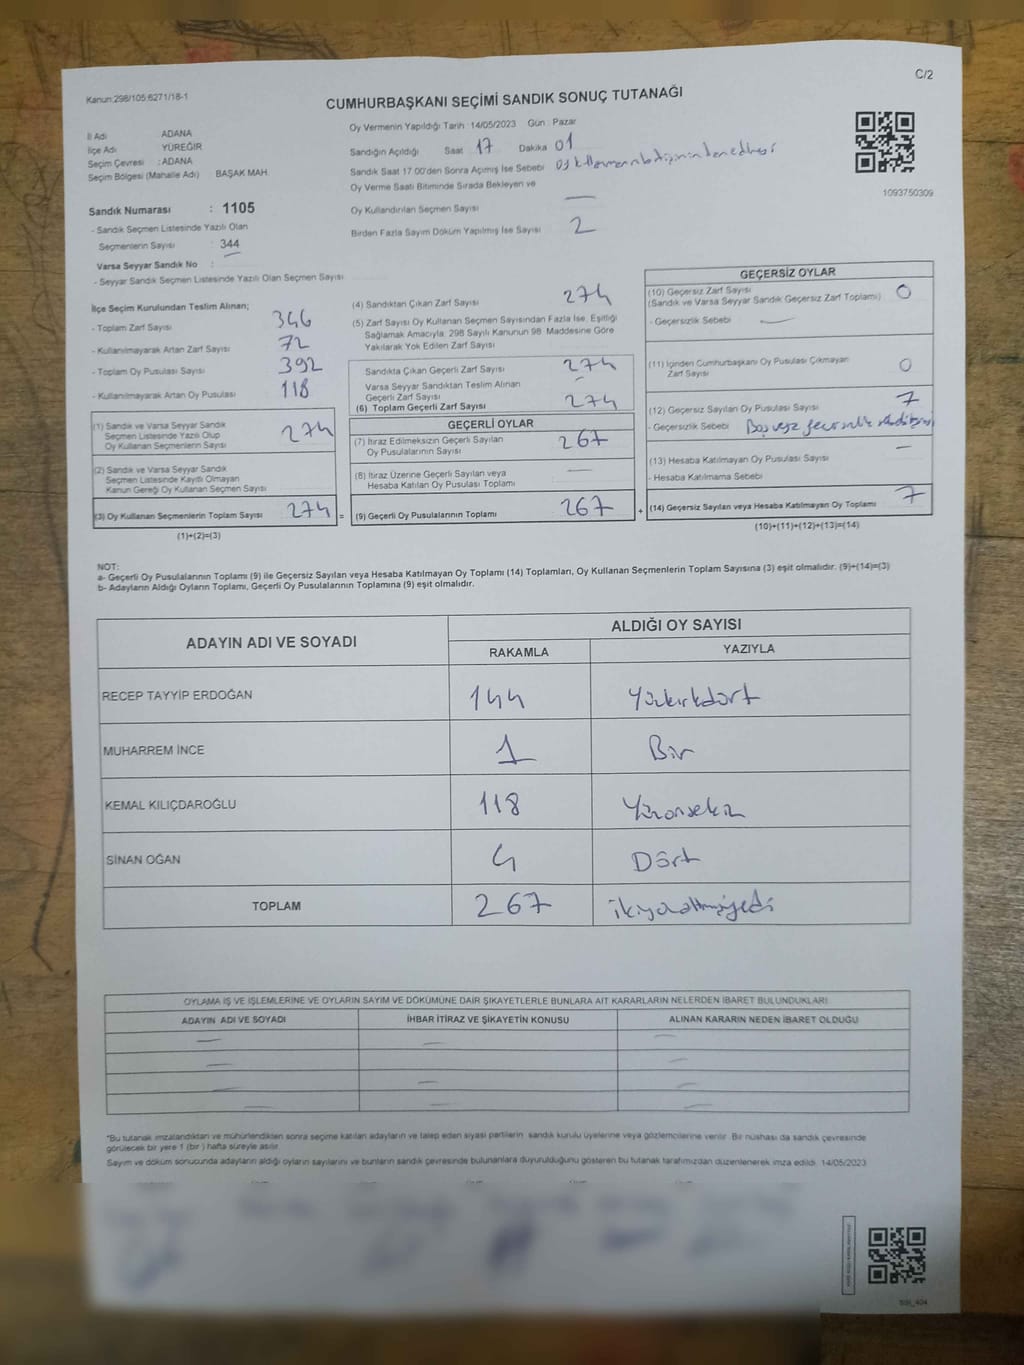 C/2
Kanun:298/105:6271/18-1
CUMHURBAŞKANI SEÇİMİ SANDIK SONUÇ TUTANAĞI
İl Adı ADANA
İlçe Adı YÜREĞİR
Seçim Çevresi : ADANA
Seçim Bölgesi (Mahalle Adı) BAŞAK MAH.
Sandık Numarası : 1105
- Sandık Seçmen Listesinde Yazılı Olan
Seçmenlerin Sayısı : 344
Varsa Seyyar Sandık No :
- Seyyar Sandık Seçmen Listesinde Yazılı Olan Seçmen Sayısı
Oy Vermenin Yapıldığı Tarih : 14/05/2023 Gün : Pazar
Sandığın Açıldığı Saat 17 Dakika 01
Sandık Saat 17:00'den Sonra Açımış İse Sebebi
Oy Verme Saati Bitiminde Sırada Bekleyen ve
Oy Kullandırılan Seçmen Sayısı —
Birden Fazla Sayım Döküm Yapılmış İse Sayısı 2
1093750309
İlçe Seçim Kurulundan Teslim Alınan;
- Toplam Zarf Sayısı 346
- Kullanılmayarak Artan Zarf Sayısı 72
- Toplam Oy Pusulası Sayısı 392
- Kullanılmayarak Artan Oy Pusulası 118
(1) Sandık ve Varsa Seyyar Sandık
Seçmen Listesinde Yazılı Olup
Oy Kullanan Seçmenlerin Sayısı 274
(2) Sandık ve Varsa Seyyar Sandık
Seçmen Listesinde Kayıtlı Olmayan
Kanun Gereği Oy Kullanan Seçmen Sayısı
(3) Oy Kullanan Seçmenlerin Toplam Sayısı 274 =
(1)+(2)=(3)
(4) Sandıktan Çıkan Zarf Sayısı 274
(5) Zarf Sayısı Oy Kullanan Seçmen Sayısından Fazla İse, Eşitliği
Sağlamak Amacıyla; 298 Sayılı Kanunun 98. Maddesine Göre
Yakılarak Yok Edilen Zarf Sayısı
Sandıkta Çıkan Geçerli Zarf Sayısı 274
Varsa Seyyar Sandıktan Teslim Alınan
Geçerli Zarf Sayısı
(6) Toplam Geçerli Zarf Sayısı 274
GEÇERLİ OYLAR
(7) İtiraz Edilmeksizin Geçerli Sayılan
Oy Pusulalarının Sayısı 267
(8) İtiraz Üzerine Geçerli Sayılan veya
Hesaba Katılan Oy Pusulası Toplamı —
(9) Geçerli Oy Pusulalarının Toplamı 267 +
GEÇERSİZ OYLAR
(10) Geçersiz Zarf Sayısı 0
(Sandık ve Varsa Seyyar Sandık Geçersiz Zarf Toplamı)
- Geçersizlik Sebebi —
(11) İçinden Cumhurbaşkanı Oy Pusulası Çıkmayan
Zarf Sayısı 0
(12) Geçersiz Sayılan Oy Pusulası Sayısı 7
- Geçersizlik Sebebi
(13) Hesaba Katılmayan Oy Pusulası Sayısı —
- Hesaba Katılmama Sebebi
(14) Geçersiz Sayılan veya Hesaba Katılmayan Oy Toplamı 7
(10)+(11)+(12)+(13)=(14)
NOT:
a- Geçerli Oy Pusulalarının Toplamı (9) ile Geçersiz Sayılan veya Hesaba Katılmayan Oy Toplamı (14) Toplamları, Oy Kullanan Seçmenlerin Toplam Sayısına (3) eşit olmalıdır. (9)+(14)=(3)
b- Adayların Aldığı Oyların Toplamı, Geçerli Oy Pusulalarının Toplamına (9) eşit olmalıdır.
ADAYIN ADI VE SOYADI ALDIĞI OY SAYISI
RAKAMLA YAZIYLA
RECEP TAYYİP ERDOĞAN 144 Yüzkırkdört
MUHARREM İNCE 1 Bir
KEMAL KILIÇDAROĞLU 118 Yüzonsekiz
SİNAN OĞAN 4 Dört
TOPLAM 267 ikiyüzaltmışyedi
OYLAMA İŞ VE İŞLEMLERİNE VE OYLARIN SAYIM VE DÖKÜMÜNE DAİR ŞİKAYETLERLE BUNLARA AİT KARARLARIN NELERDEN İBARET BULUNDUKLARI
ADAYIN ADI VE SOYADI İHBAR İTİRAZ VE ŞİKAYETİN KONUSU ALINAN KARARIN NEDEN İBARET OLDUĞU
— — —
— — —
— — —
— — —
*Bu tutanak imzalandıktan ve mühürlendikten sonra seçime katılan adayların ve talep eden siyasi partilerin sandık kurulu üyelerine veya gözlemcilerine verilir. Bir nüshası da sandık çevresinde
görülecek bir yere 1 (bir ) hafta süreyle asılır.
Sayım ve döküm sonucunda adayların aldığı oyların sayılarını ve bunların sandık çevresinde bulunanlara duyurulduğunu gösteren bu tutanak tarafımızdan düzenlenerek imza edildi. 14/05/2023